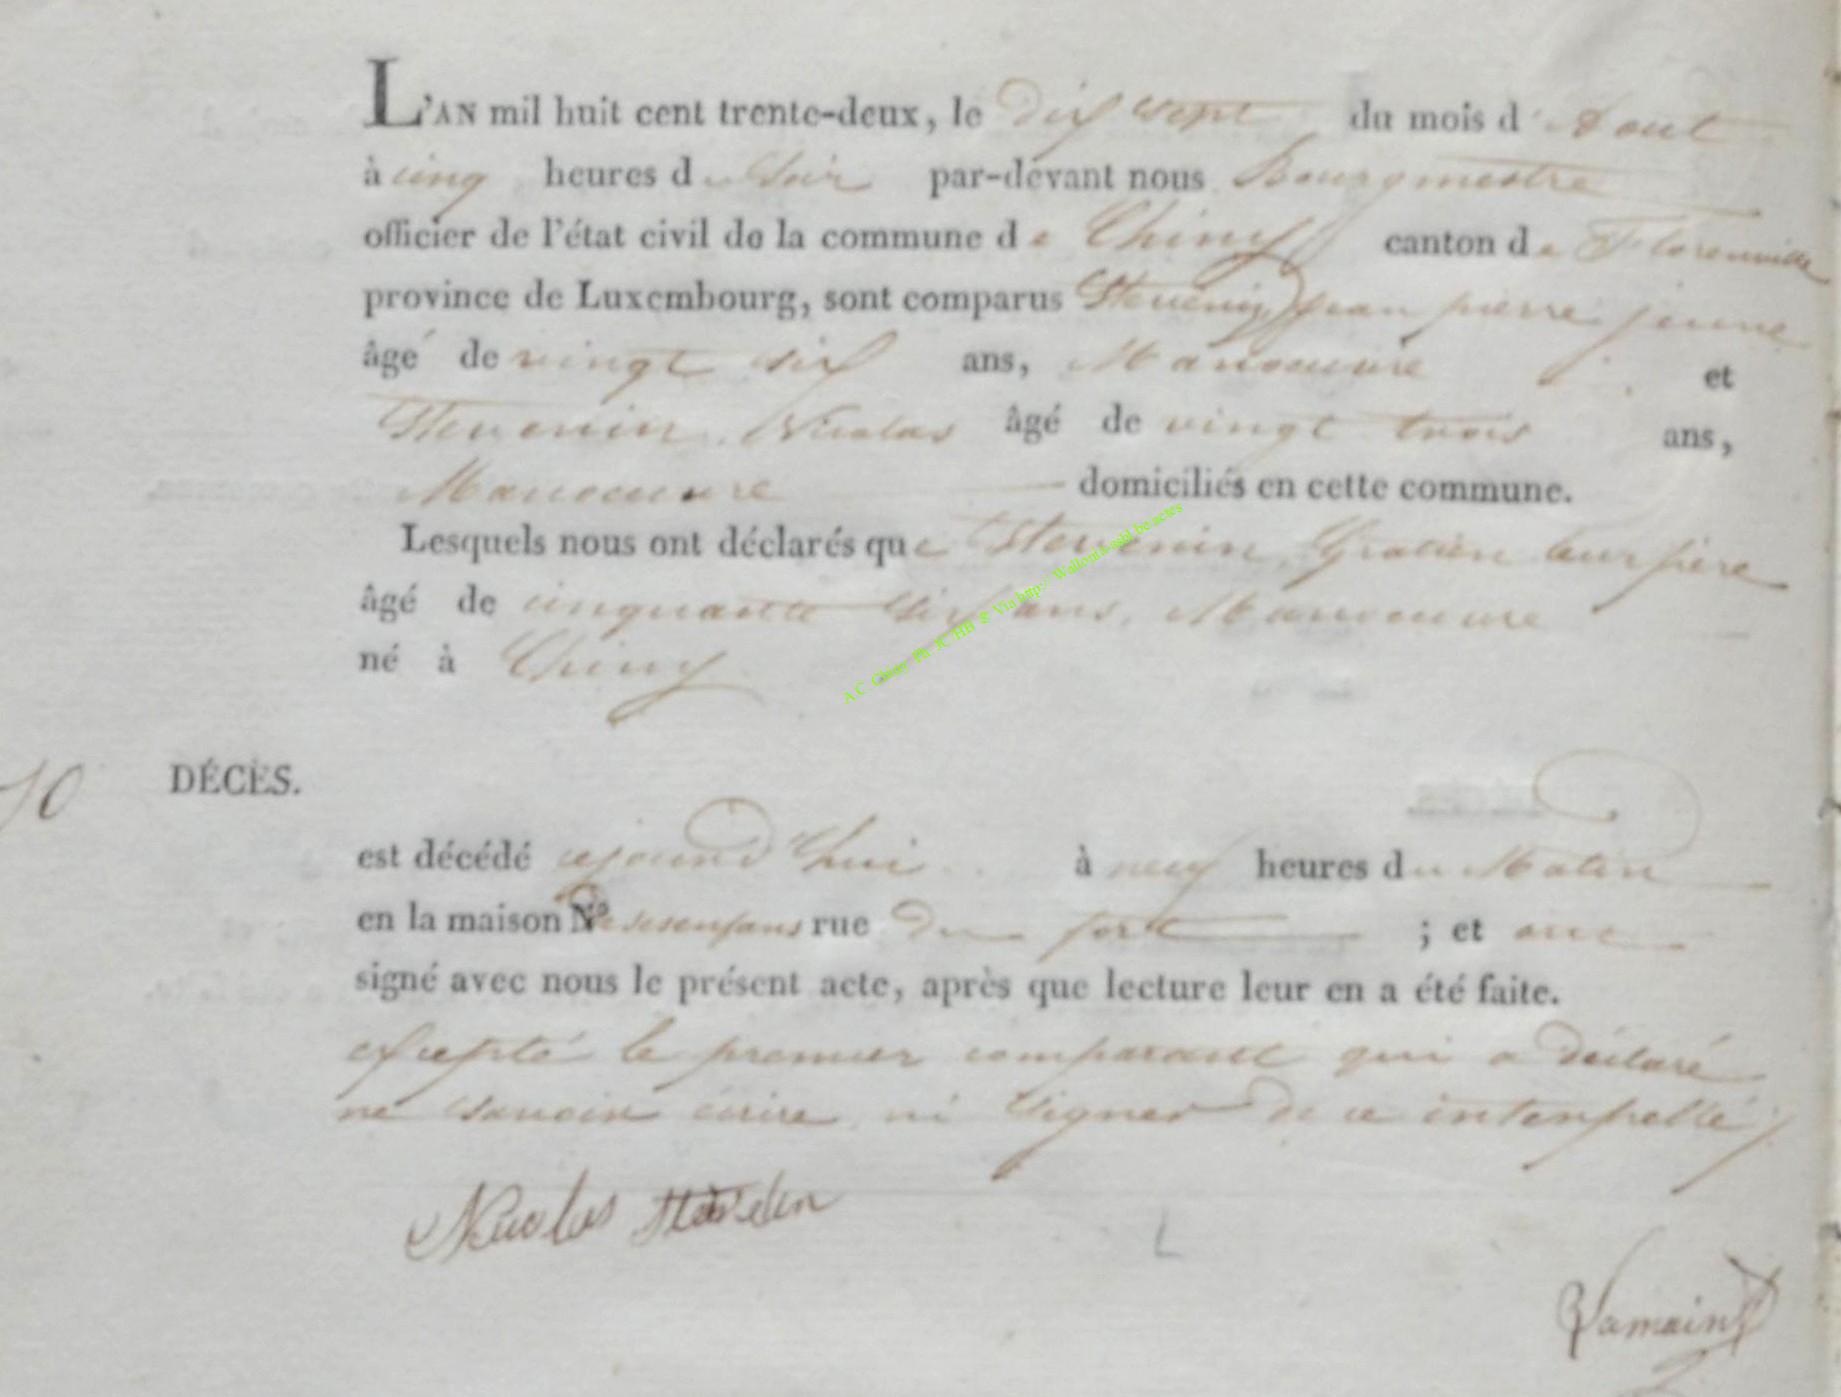 L'AN mil huit cent trente-deux, le dix sept du mois d'Aout
à cinq heures du Soir par-devant nous Bourgmestre
officier de l'état civil de la commune de Chiny canton de Florenville
province de Luxembourg, sont comparus Stevenin Jean pierre jeune
âgé de vingt six ans, Manoeuvre et
Stevenin Nicolas âgé de vingt trois ans,
Manoeuvre domiciliés en cette commune.
Lesquels nous ont déclarés que Stevenin, Gratien leur père
âgé de cinquante six ans, Manoeuvre
né à Chiny
10 DÉCÈS.
est décédé cejourd'hui à neuf heures du Matin
en la maison N° de ses enfans rue du fort ; et ont
signé avec nous le présent acte, après que lecture leur en a été faite.
excepté le premier comparant qui a déclaré
ne savoir écrire, ni signer de ce interpellé
Nicolas